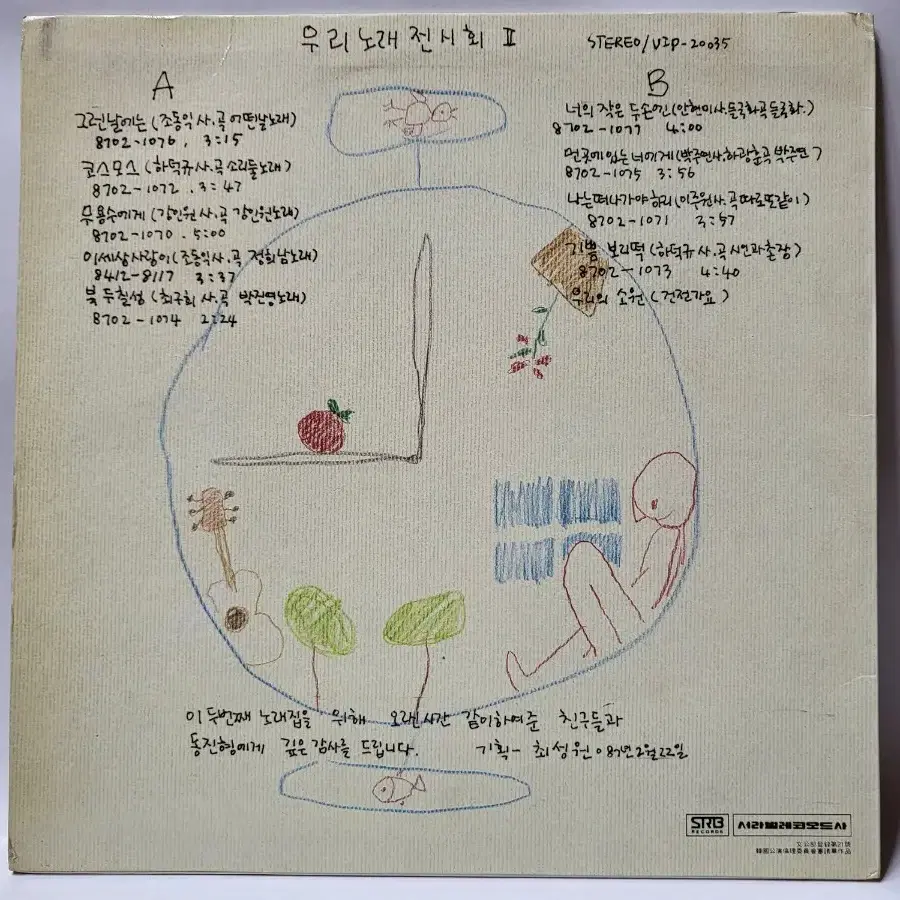 우리노래전시회 II
STEREO/VIP-20035
A
그런날에는 (조동익 사.곡 어떤날노래)
8702-1076, 3:15
코스모스 (하덕규 사.곡 소리둘노래)
8702-1072. 3:47
무용수에게 (강인원 사.곡 강인원노래)
8702-1070. 5:00
이세상사랑이 (조동익사.곡 정희남노래)
8412-8117 3:37
북두칠성 (최구희 사.곡 박진영노래)
8702-1074 2:24
B
너의 작은 두손엔 (안현미사.들국화곡 들국화.)
8702-1077 4:00
먼곳에 있는 너에게 (박주연사.하광훈곡 박주연)
8702-1075 3:56
나는 떠나가야 하리 (이주원사.곡 따로또같이)
8702-1071 3:57
기쁨 보리떡 (하덕규 사.곡 시인과촌장)
8702-1073 4:40
우리의 소원 (건전가요)
이 두번째 노래집을 위해 오랜시간 같이하여준 친구들과
동진형에게 깊은 감사를 드립니다. 기획- 최성원 87년 2월 22일
SRB RECORDS 서라벌레코오드사